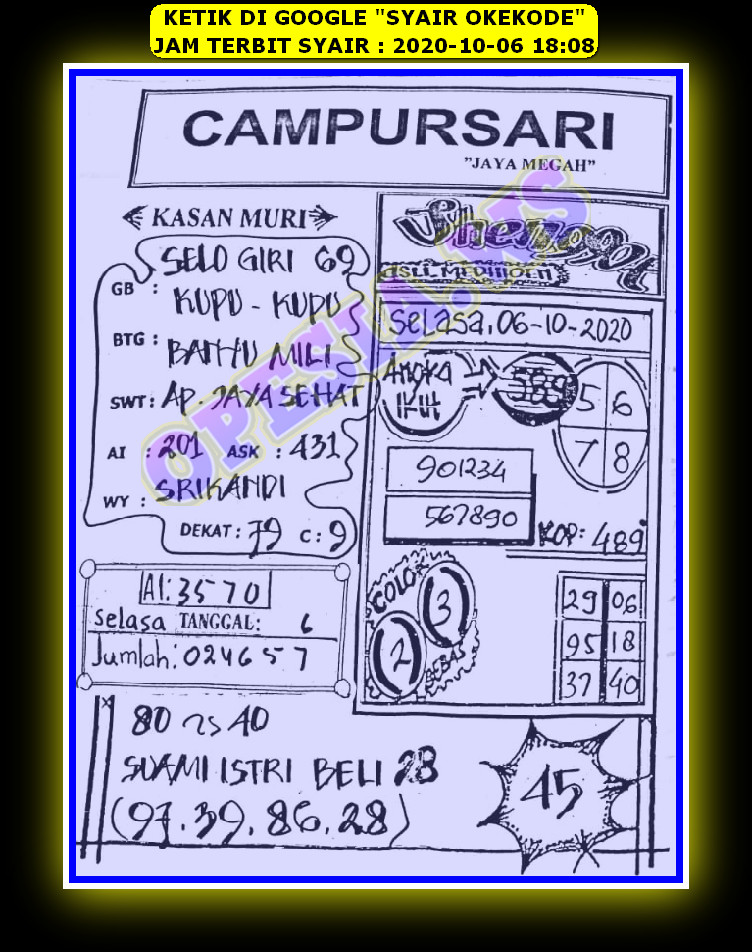 KETIK DI GOOGLE "SYAIR OKEKODE"
JAM TERBIT SYAIR : 2020-10-06 18:08
CAMPURSARI
"JAYA MEGAH"
KASAN MURI
GB : SELO GIRI 69
KUPU - KUPU
BTG : BANYU MILI
SWT : AP. JAYA SEHAT
AI : 201 ASK : 431
WY : SRIKANDI
DEKAT : 79 C : 9
AI: 3570
Selasa TANGGAL: 6
Jumlah: 024657
Shengoat
ASLI
Selasa, 06-10-2020
ANGKA
IKUT
589
5 6
7 8
901234
567890
KOP: 489
COLOK
3
2
BEBAS
29 06
95 18
37 40
80 vs 40
SUAMI ISTRI BELI 28
(97.39.86.28)
45
OPESIA.WS